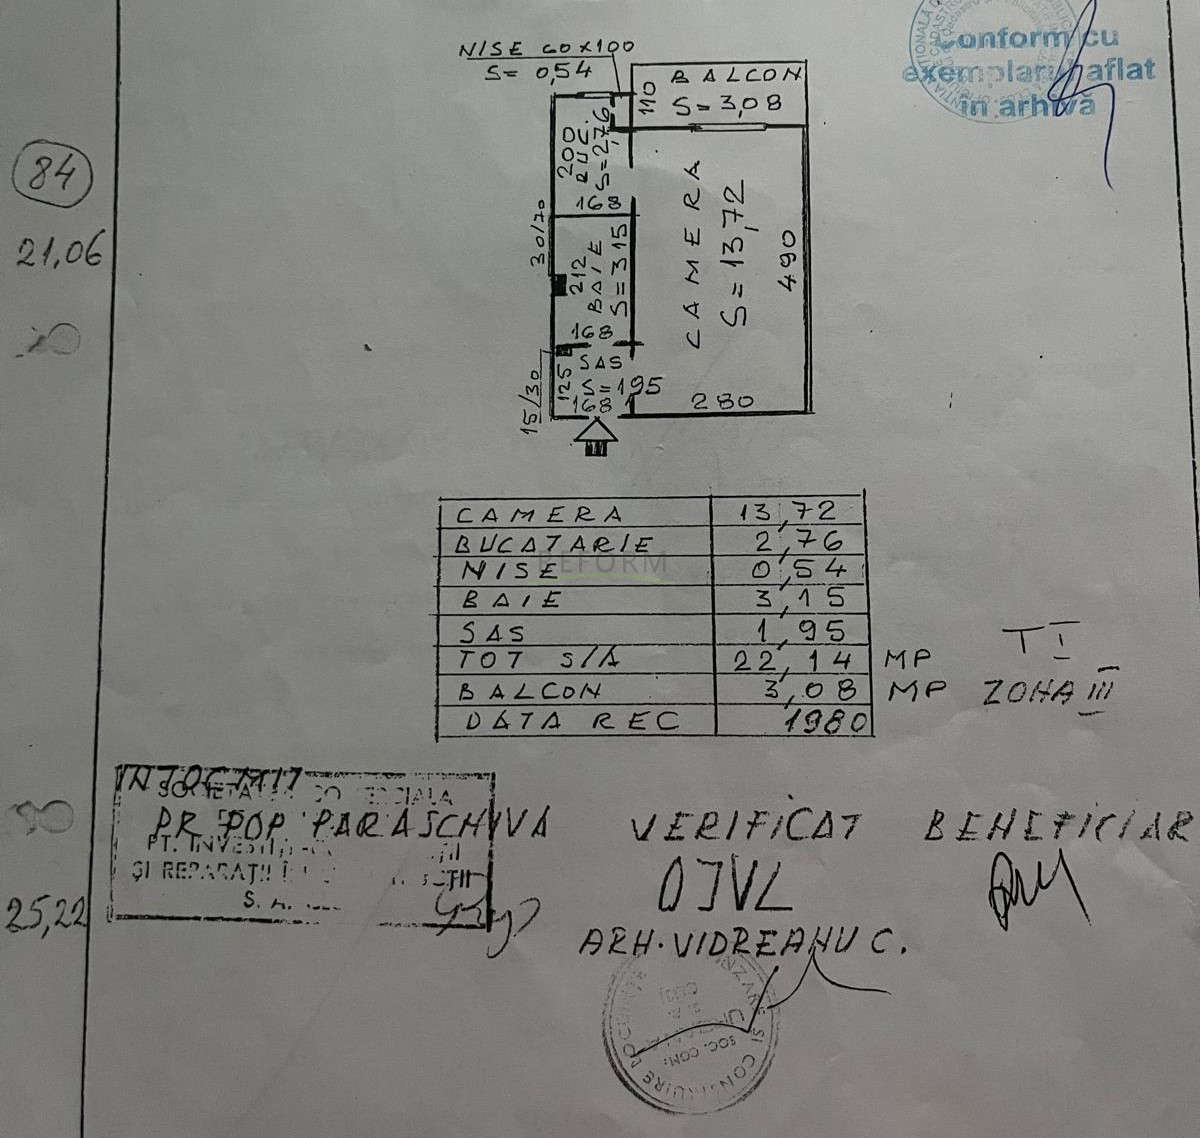 Conform cu
exemplaru aflat
în arhivă
84
21,06
25,22
NISE 60×100
S= 0,54
BALCON
S=3,08
110
200
BUC.
S=2,76
168
30/70
212
BAIE
S=315
168
CAMERA
S=13,72
490
280
15/30
125
SAS
S=195
168
CAMERA 13,72
BUCATARIE 2,76
NISE 0,54
BAIE 3,15
SAS 1,95
TOT S/A 22,14 MP
BALCON 3,08 MP
DATA REC 1980
T I
ZONA III
REFORM
INTOCMIT
PR POP PARASCHIVA
ȘI REPARAȚII
S. A.
VERIFICAT
OJVL
ARH. VIDREANU C.
BENEFICIAR
SOC. COM.